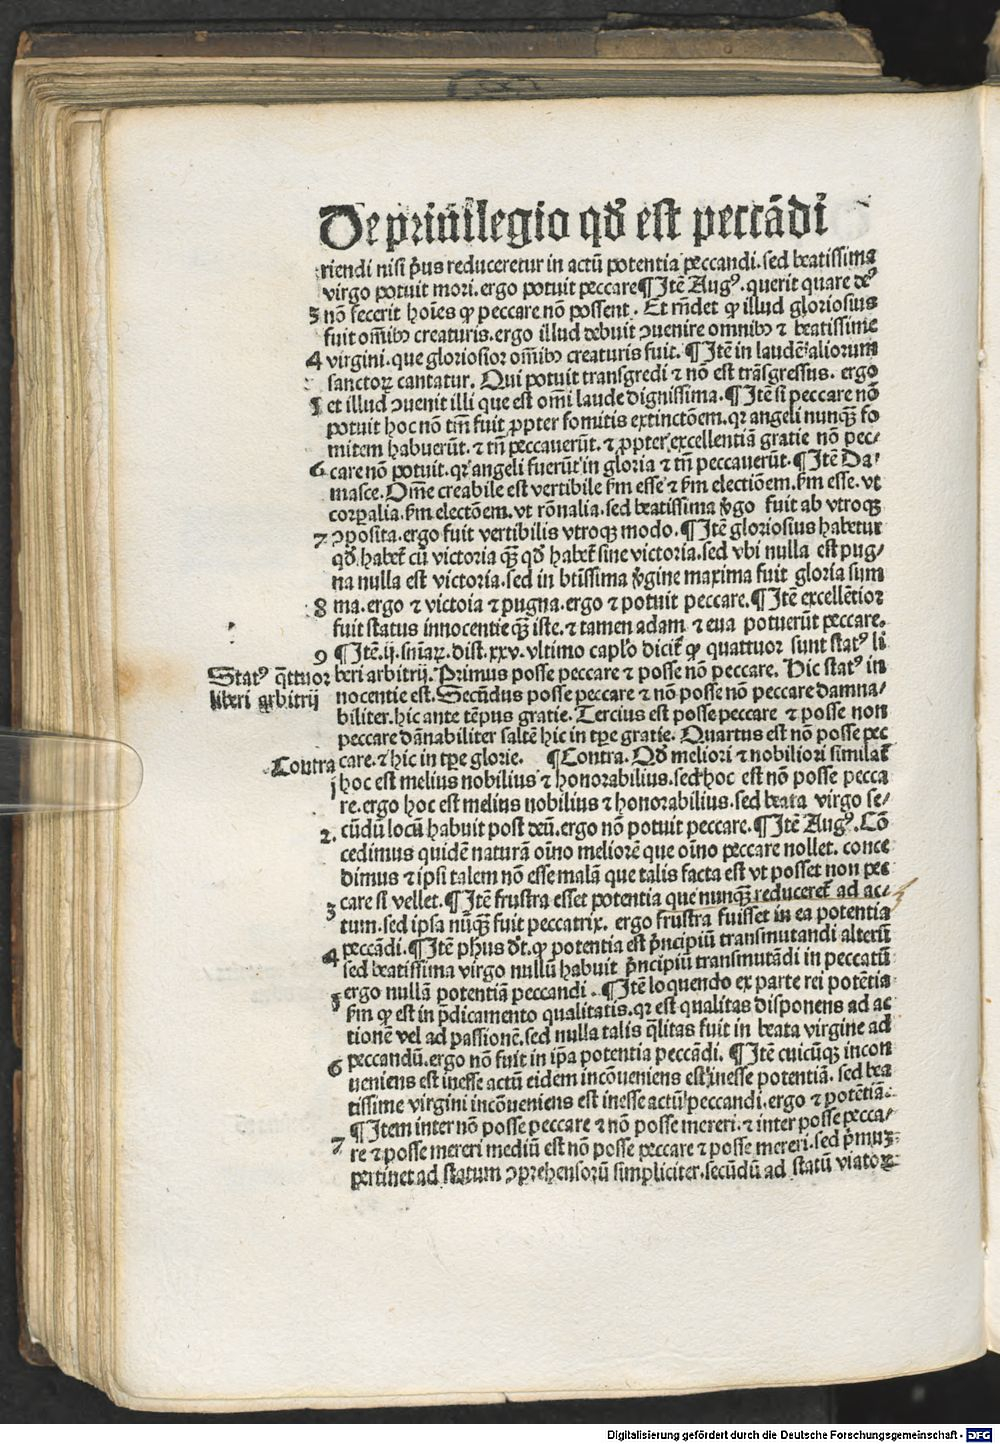 De priuilegio qd̃ est peccãdi
riendi nisi p̃us reduceretur in actũ potentia peccandi. sed beatissima
virgo potuit mori. ergo potuit peccare ¶ Itẽ Augꝰ. querit quare deꝰ
3 nõ fecerit hoĩes ꝙ peccare nõ possent. Et rñdet ꝙ illud gloriosius
fuit om̃ibꝰ creaturis. ergo illud debuit ↄuenire omnibꝰ ⁊ beatissime
4 virgini. que gloriosior om̃ibꝰ creaturis fuit. ¶ Itẽ in laudẽ aliorum
sanctoꝝ cantatur. Qui potuit transgredi ⁊ nõ est trãsgressus. ergo
5 et illud ↄuenit illi que est om̃i laude dignissima. ¶ Itẽ si peccare nõ
potuit hoc nõ tm̃ fuit ꝓpter fomitis extinctõem. qꝛ angeli nunqꝫ̃ fo
mitem habuerũt. ⁊ tñ peccauerũt. ⁊ ꝓpter excellentiã gratie nõ pec⸗
6 care nõ potuit. qꝛ angeli fuerũt in gloria ⁊ tñ peccauerũt. ¶ Itẽ Da⸗
masce. Om̃e creabile est vertibile ẜm esse ⁊ ẜm electiõem. ẜm esse. vt
corꝑalia. ẜm electõem. vt rõnalia. sed beatissima ỽgo fuit ab vtroqꝫ
7 ↄposita. ergo fuit vertibilis vtroqꝫ modo. ¶ Itẽ gloriosius habetur
qd̃. habet̃ cũ victoria qꝫ̃ qd̃ habet̃ sine victoria. sed vbi nulla est pug⸗
na nulla est victoria. sed in btĩssima ỽgine maxima fuit gloria sum
8 ma. ergo ⁊ victoia ⁊ pugna. ergo ⁊ potuit peccare. ¶ Itẽ excellẽtior
fuit status innocentie qꝫ̃ iste. ⁊ tamen adam ⁊ eua potuerũt peccare.
9 ¶ Itẽ. ij. sñiaꝝ. dist. xxv. vltimo caplo dicit̃ ꝙ quattuor sunt statꝰ li
Statꝰ q̃ttuor beri arbitrij. Primus posse peccare ⁊ posse nõ peccare. Hic statꝰ in
liberi arbitrij nocentie est. Secũdus posse peccare ⁊ nõ posse nõ peccare damna⸗
biliter. hic ante tẽpus gratie. Tercius est posse peccare ⁊ posse non
peccare dãnabiliter saltẽ hic in tp̃e gratie. Quartus est nõ posse pec
Contra care. ⁊ hic in tp̃e glorie. ¶ Contra. Qd̃ meliori ⁊ nobiliori similat̃
i hoc est melius nobilius ⁊ honorabilius. sed hoc est nõ posse pecca
re. ergo hoc est melius nobilius ⁊ honorabilius. sed beata virgo se⸗
2. cũdũ locũ habuit post deũ. ergo nõ potuit peccare. ¶ Itẽ Augꝰ. Cõ
cedimus quidẽ naturã oĩno meliorẽ que oĩno peccare nollet. conce
dimus ⁊ ipsi talem nõ esse malã que talis facta est vt posset non pec
3 care si vellet. ¶ Itẽ frustra esset potentia que nunqꝫ̃ reduceret̃ ad ac⸗
tum. sed ipsa nũqꝫ̃ fuit peccatrix. ergo frustra fuisset in ea potentia
4 peccãdi. ¶ Itẽ ph̃us dt̃. ꝙ potentia est p̃ncipiũ transmutandi alterũ
sed beatissima virgo nullũ habuit p̃ncipiũ transmutãdi in peccatũ
5 ergo nullã potentiã peccandi. ¶ Itẽ loquendo ex parte rei potẽtia
ẜm ꝙ est in p̃dicamento qualitatis. qꝛ est qualitas disponens ad ac
tionẽ vel ad passionẽ. sed nulla talis q̃litas fuit in beata virgine ad
6 peccandũ. ergo nõ fuit in ip̃a potentia peccãdi. ¶ Itẽ cuicũqꝫ incon
ueniens est inesse actũ eidem incõueniens est inesse potentiã. sed bea
tissime virgini incõueniens est inesse actũ peccandi. ergo ⁊ potẽtiã.
7 ¶ Item inter nõ posse peccare ⁊ nõ posse mereri. ⁊ inter posse pecca⸗
re ⁊ posse mereri mediũ est nõ posse peccare ⁊ posse mereri. sed p̃muꝫ
pertinet ad statum ↄprehensorũ simpliciter. secũdũ ad statũ viatoꝝ
Digitalisierung gefördert durch die Deutsche Forschungsgemeinschaft - DFG